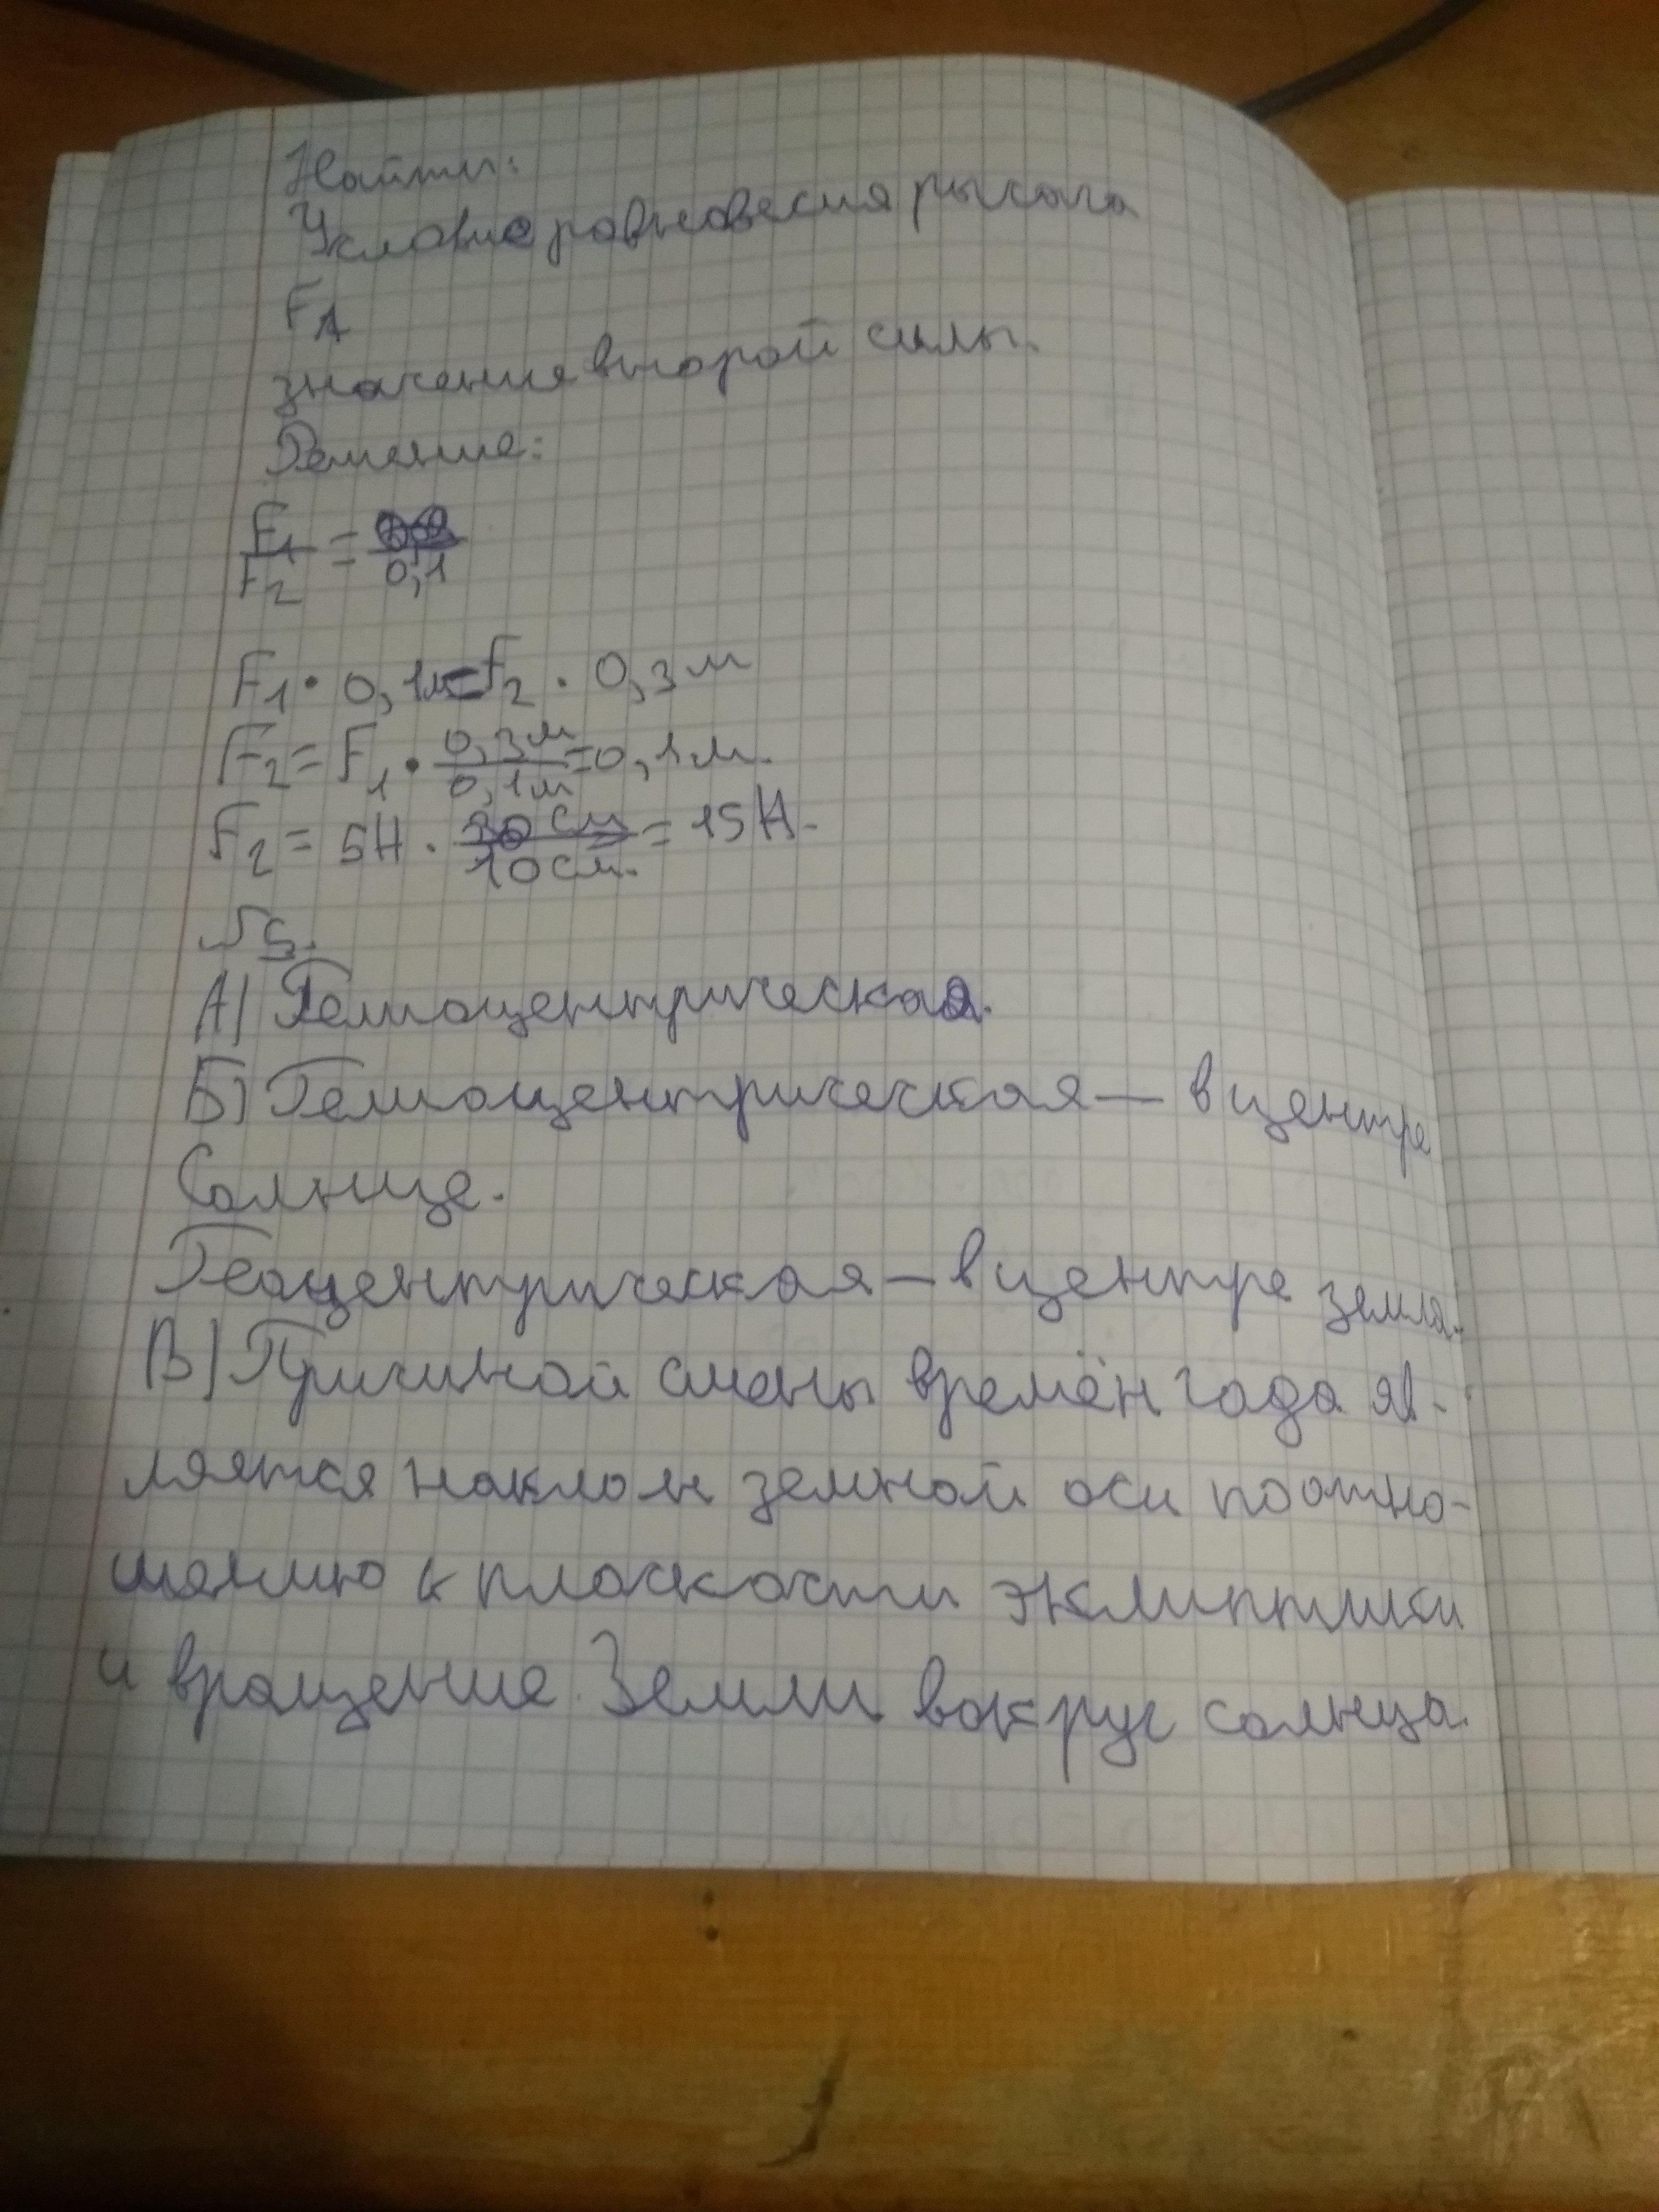 Найти:
Условие равновесия рычага
F1
значения второй силы.
Решение:
F1/F2 = /0,1
F1 · 0,1м = F2 · 0,3 м
F2 = F1 · 0,3м/0,1м = 0,1м.
F2 = 5Н · 30 см/10 см. = 15 Н.
№5.
А) Гелиоцентрическая.
Б) Гелиоцентрическая — в центре
Солнце.
Геоцентрическая — в центре земля.
В) Причиной смены времён года яв-
ляется наклон земной оси по отно-
шению к плоскости эклиптики
и вращение Земли вокруг солнца.